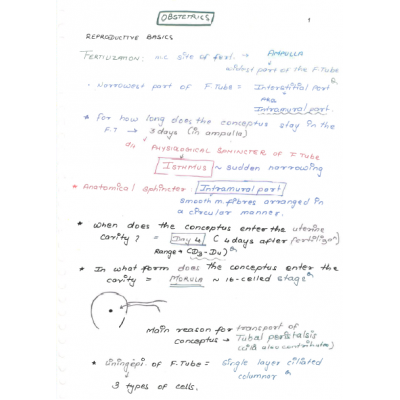 OBSTETRICS
1
REPRODUCTIVE BASICS
FERTILIZATION: m.c site of fert. → AMPULLA
widest part of the F.Tube
• narrowest part of F.Tube = Interstitial part
aka
Intramural part.
* for how long does the conceptus stay in the
F.T → 3 days (in ampulla)
PHYSIOLOGICAL SPHINCTER OF F TUBE
ISTHMUS ~ sudden narrowing
* Anatomical sphincter: Intramural part
smooth m. fibres arranged in
a circular manner.
* when does the conceptus enter the uterine
cavity? = Day 4 (4 days after fertilizn)
Range → (D3-D4)
* In what form does the conceptus enter the
cavity = MORULA ~ 16-celled stage
Main reason for transport of
conceptus → Tubal peristalsis
(cilia also contributes)
* lining epi of F.Tube = single layer ciliated
columnar
3 types of cells.